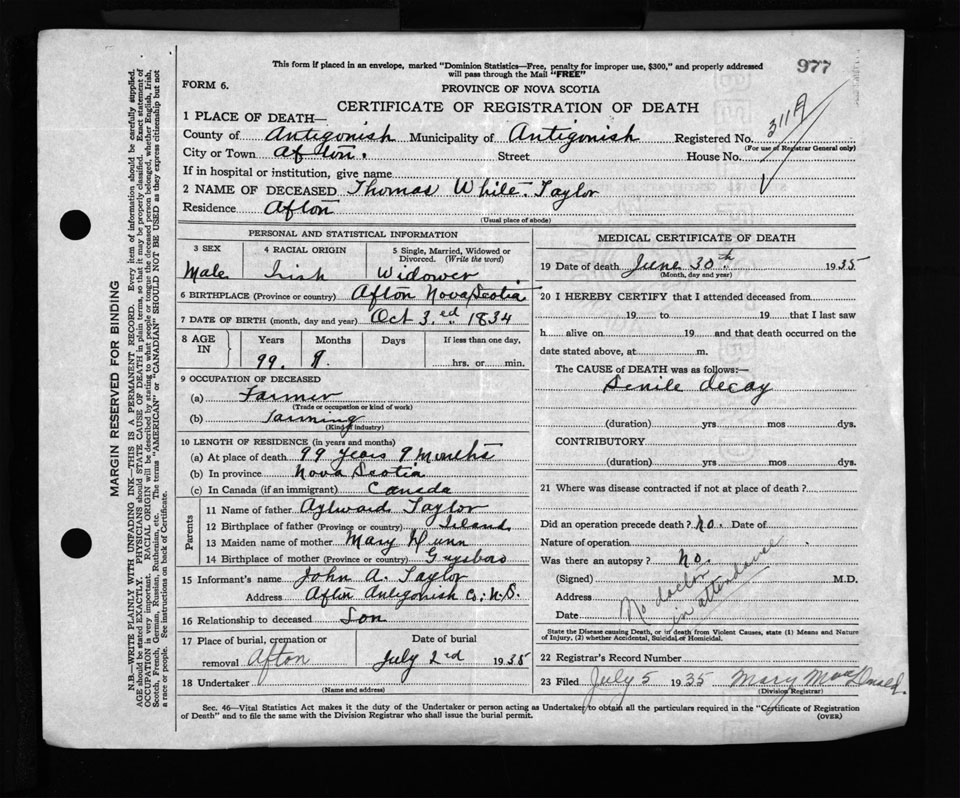 This form if placed in an envelope, marked "Dominion Statistics—Free, penalty for improper use, $300," and properly addressed
will pass through the Mail "FREE"
977
FORM 6.
PROVINCE OF NOVA SCOTIA
CERTIFICATE OF REGISTRATION OF DEATH
3119
1 PLACE OF DEATH—
County of Antigonish Municipality of Antigonish Registered No.
(For use of Registrar General only)
City or Town Afton. Street House No.
If in hospital or institution, give name
2 NAME OF DECEASED Thomas White Taylor
Residence Afton
(Usual place of abode)
PERSONAL AND STATISTICAL INFORMATION
3 SEX 4 RACIAL ORIGIN 5 Single, Married, Widowed or Divorced. (Write the word)
Male Irish Widower
6 BIRTHPLACE (Province or country) Afton Nova Scotia
7 DATE OF BIRTH (month, day and year) Oct 3.ed 1834
8 AGE IN Years Months Days If less than one day,
99. hrs. or min.
9 OCCUPATION OF DECEASED
(a) Farmer
(Trade or occupation or kind of work)
(b) Farming
(Kind of industry)
10 LENGTH OF RESIDENCE (in years and months)
(a) At place of death 99 years 9 Months
(b) In province Nova Scotia
(c) In Canada (if an immigrant) Canada
Parents
11 Name of father Aylward Taylor
12 Birthplace of father (Province or country) Island
13 Maiden name of mother Mary Dunn
14 Birthplace of mother (Province or country) Guysboro
15 Informant's name John A. Taylor
Address Afton Antigonish Co; N.S.
16 Relationship to deceased Son
17 Place of burial, cremation or removal Afton Date of burial July 2nd 1935
18 Undertaker
(Name and address)
MEDICAL CERTIFICATE OF DEATH
19 Date of death June 30th 1935
(Month, day and year)
20 I HEREBY CERTIFY that I attended deceased from
19 to 19 that I last saw
h alive on 19 and that death occurred on the
date stated above, at m.
The CAUSE of DEATH was as follows:—
Senile decay
(duration) yrs mos dys.
CONTRIBUTORY
(duration) yrs. mos. dys.
21 Where was disease contracted if not at place of death?
Did an operation precede death? No. Date of
Nature of operation
Was there an autopsy? No.
(Signed) M.D.
Address
Date
No doctor
in attendance
State the Disease causing Death, or in death from Violent Causes, state (1) Means and Nature
of Injury, (2) whether Accidental, Suicidal, or Homicidal.
22 Registrar's Record Number
23 Filed July 5 1935 Mary MacDonald.
(Division Registrar)
Sec. 46—Vital Statistics Act makes it the duty of the Undertaker or person acting as Undertaker to obtain all the particulars required in the "Certificate of Registration
of Death" and to file the same with the Division Registrar who shall issue the burial permit.
(OVER)
MARGIN RESERVED FOR BINDING
N.B.—WRITE PLAINLY WITH UNFADING INK—THIS IS A PERMANENT RECORD. Every item of information should be carefully supplied.
AGE should be stated EXACTLY. PHYSICIANS should STATE CAUSE OF DEATH in plain terms, so that it may be properly classified. Exact statement of
OCCUPATION is very important. RACIAL ORIGIN will be described by stating to what people or tongue the deceased person belonged, whether English, Irish,
Scotch, French, German, Russian, Ruthenian, etc. The terms "AMERICAN" or "CANADIAN" SHOULD NOT BE USED as they express citizenship but not
a race or people. See instructions on back of Certificate.